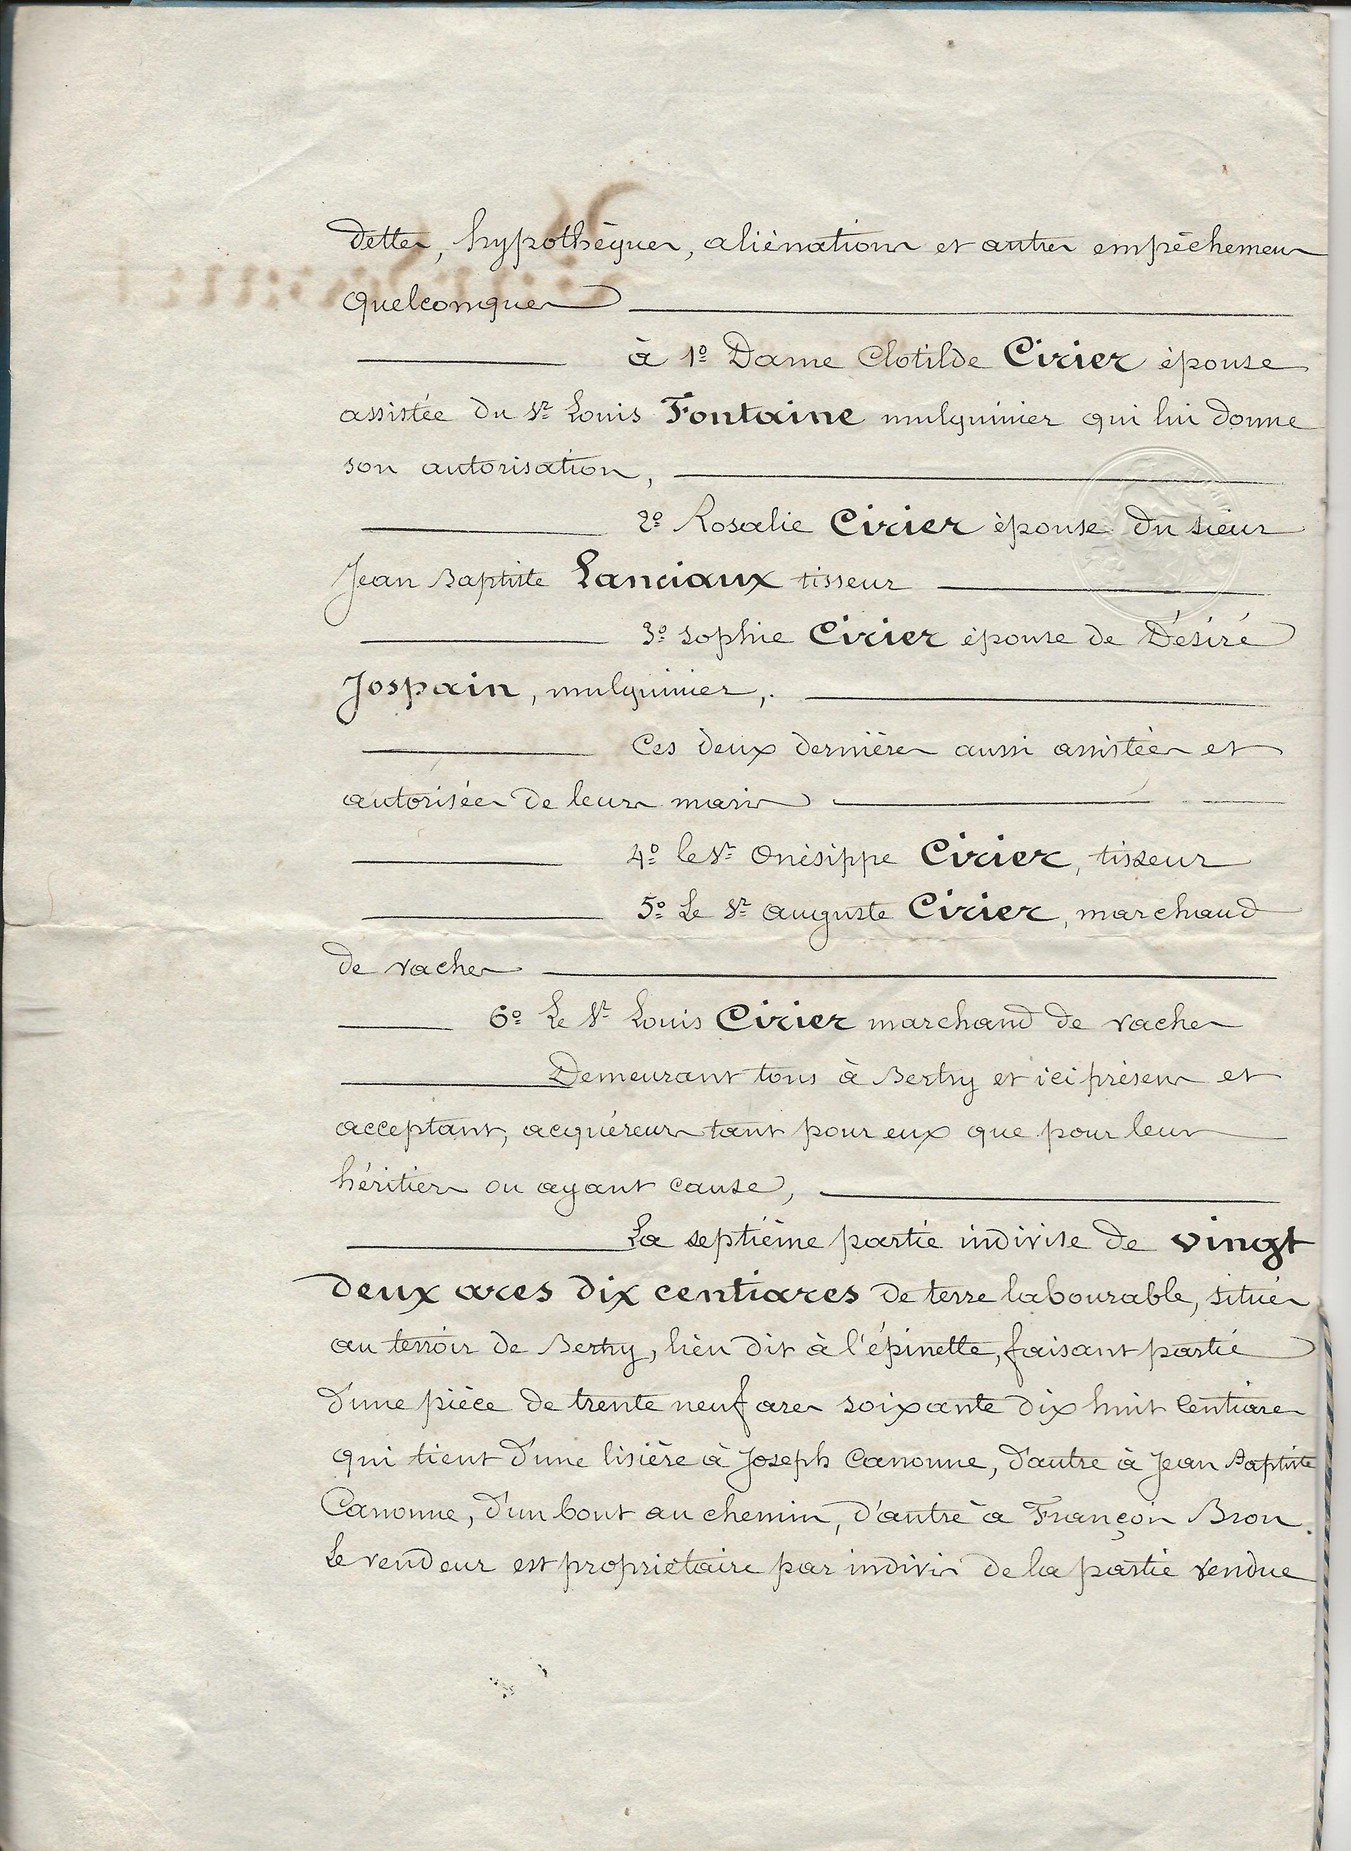 dettes, hypothèques, aliénations et autres empêchemens
quelconques
à 1º Dame Clotilde Cirier épouse
assistée du Sr. Louis Fontaine mulquinier qui lui donne
son autorisation,
2º Rosalie Cirier épouse du sieur
Jean Baptiste Lanciaux tisseur
3º Sophie Cirier épouse de Désiré
Jospain, mulquinier,.
Ces deux dernières aussi assistées et
autorisées de leurs maris
4º le Sr. Onésippe Cirier, tisseur
5º Le Sr. Auguste Cirier, marchand
de vaches
6º Le Sr. Louis Cirier marchand de vaches
Demeurant tous à Bertry et ici présens et
acceptant, acquéreurs tant pour eux que pour leurs
héritiers ou ayant cause,
La septième partie indivise de vingt
deux ares dix centiares de terre labourable, située
au terroir de Bertry, lieu dit à l'épinette, faisant partie
d'une pièce de trente neuf ares soixante dix huit centiares
qui tient d'une lisière à Joseph Canonne, d'autre à Jean Baptiste
Canonne, d'un bout au chemin, d'autre à François Bron.
Le vendeur est propriétaire par indivis de la partie vendue